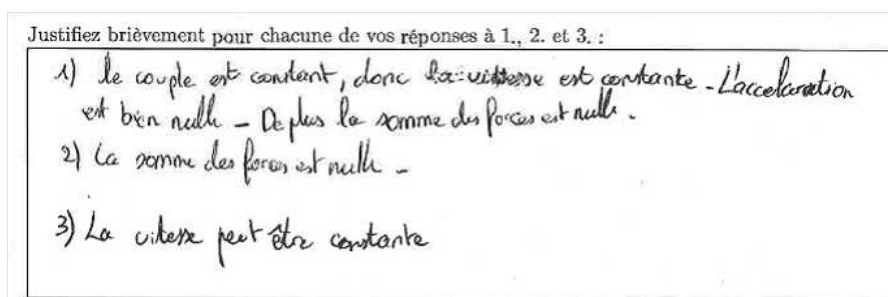 Justifiez brièvement pour chacune de vos réponses à 1., 2. et 3. :
1) le couple est constant, donc la vitesse est constante - L'accelaration
est bien nulle - De plus la somme des forces est nulle.
2) La somme des forces est nulle -
3) La vitesse peut être constante